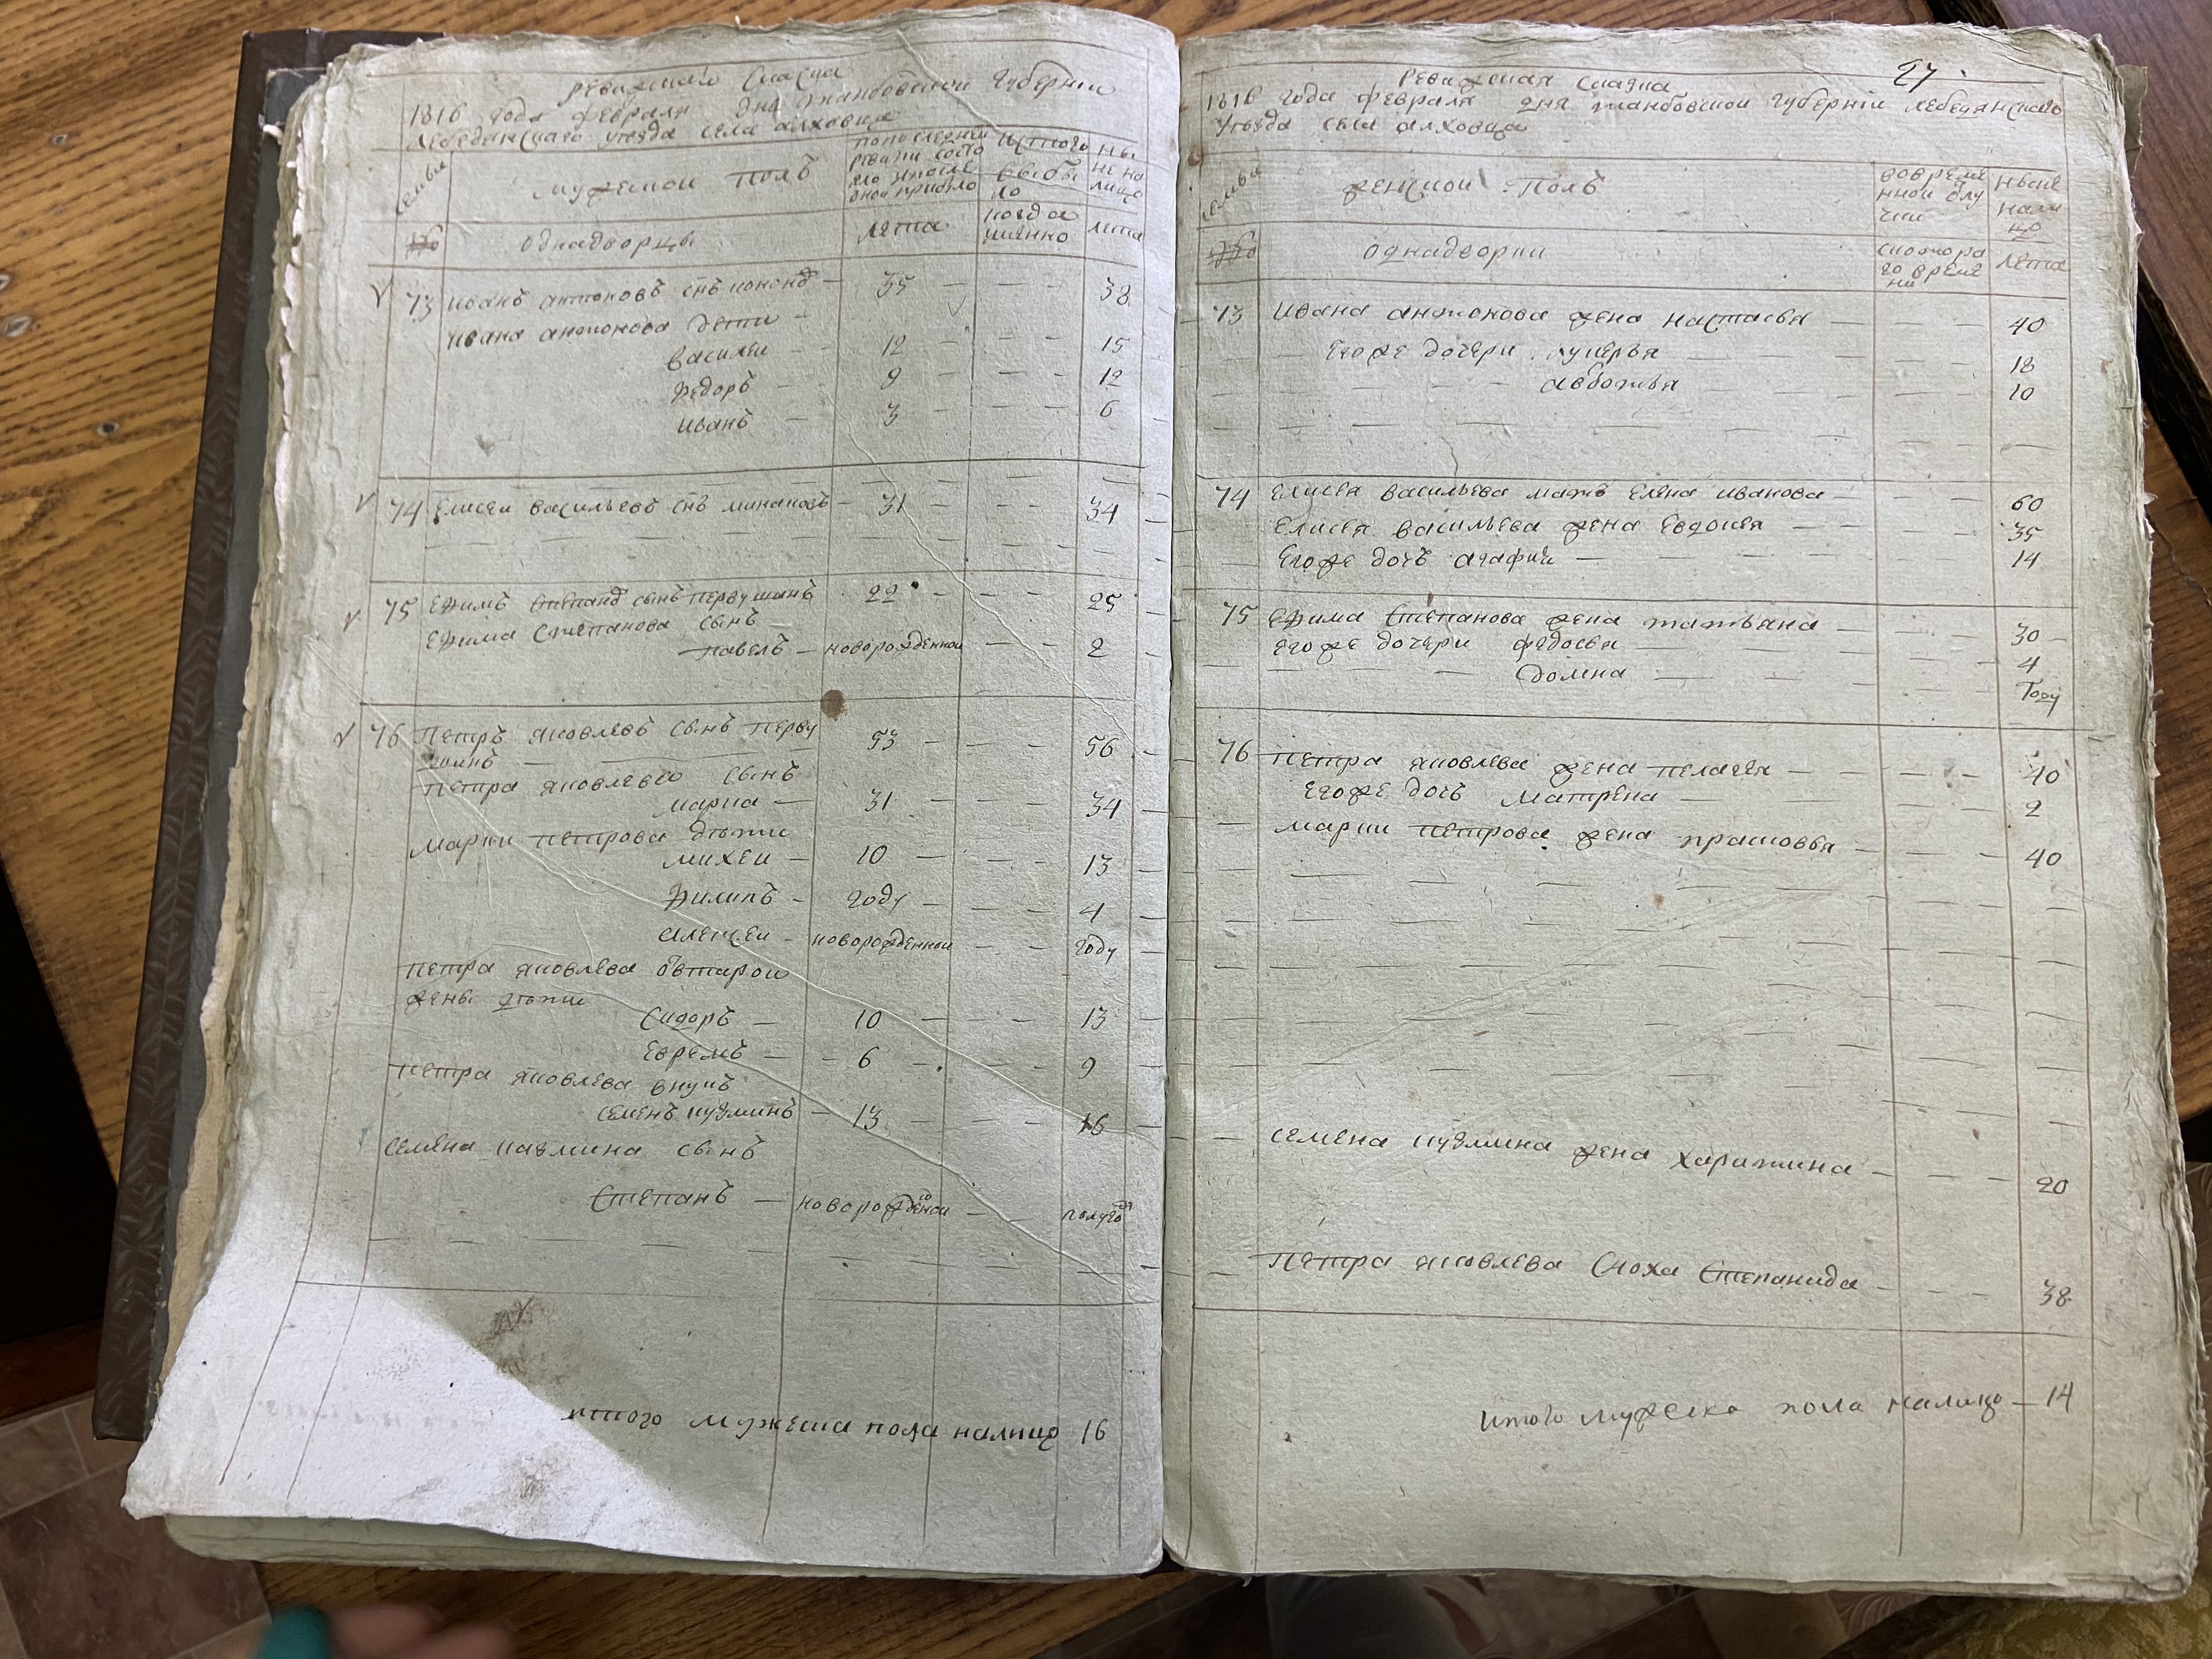 ревизского сказца
1816 года февраля дня танбовской губернии
лебедянского уезда села алховца
семьи
мужеской полъ
попоследней ревизи состояло ипосле оной прибыло
истого выбыло
ныне налицо
№
однадворцы
лета
когда имянно
лета
73 иванъ антоновъ снъ 35 — — — 38
ивана антонова дети —
василеи — 12 — — — 15
федоръ — 9 — — — 12
иванъ — 3 — — — 6
74 Елисеи васильевъ снъ — 31 — — — 34
75 Ефимъ степановъ сынъ первушинъ 22 — — — 25
Ефима степанова сынъ —
павелъ — новорожденнои — — 2
76 Петръ яковлевъ сынъ перву
шинъ — 53 — — — 56
петра яковлева сынъ
марка — 31 — — — 34
марки петрова дѣти
михеи — 10 — — — 13
филипъ — году — — — 4
алексеи — новорожденнои — — году
петра яковлева овтарои
жены дѣти
Сидоръ — 10 — — — 13
Ефремъ — 6 — — — 9
петра яковлева внукъ
семенъ кузминъ — 13 — — — 16
семена казмина сынъ
Степанъ — новорожденои — — полугода
итого мужеска пола налицо 16
27.
Ревижская сказка
1816 года февраля дня танбовской губерніи лебедянскаго
уезда села алховца
семьи
женскои полъ
вовременнои отлучки
ныне налицо
№
однадворки
скотора го времени
лета
73 ивана антонова жена настасья — — — 40
Егоже дочери лукерья — — — 18
— — — авдотья — — — 10
74 Елисея васильева мать Елена иванова — — — 60
Елисея васильева жена Евдокея — — — 35
Егоже дочь агафия — — — 14
75 Ефима Степанова жена татьяна — — — 30 —
егоже дочери федосья — — — 4
— — домна — — — Году
76 петра яковлева жена пелагея — — — 40
Егоже дочь матрена — — — 2
— марки петрова жена прасковья — — — 40
— семена кузмина жена харитина — — — 20
— петра яковлева сноха Степанида — — — 38
итого мужеска пола налицо — 14